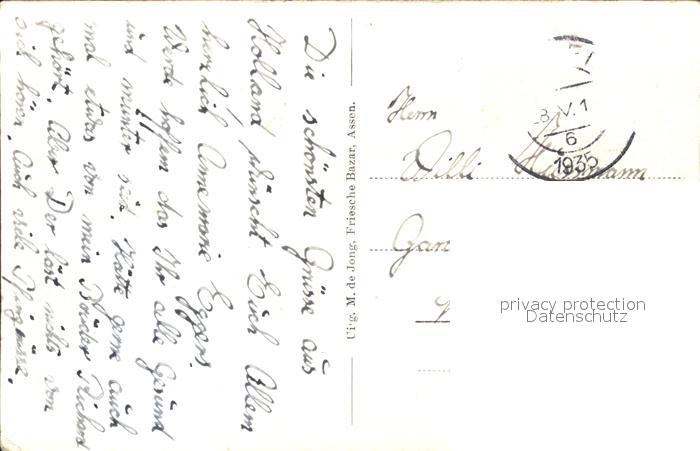 Die schönsten Grüsse aus
Holland wünscht Euch Allem
herzlich Annemarie Eggers.
Werde hoffen das Ihr alle Gesund
und munter seit. Hätte gerne auch
mal etwas von mein Brüder Richard
gehört. Aber Der läst nichts von
sich hören. Auch viele Pfingsgrüsse.
Uitg. M. de Jong, Friesche Bazar, Assen.
8.V.1
6
1935
Herrn
Willi
Gar
privacy protection
Datenschutz